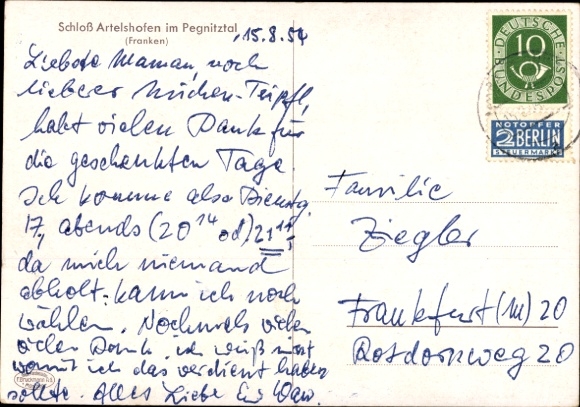 Schloß Artelshofen im Pegnitztal
(Franken)
15.8.54
Liebste Maman, noch
lieberer
habt vielen Dank für
die geschenkten Tage
Ich komme also Dienstag
17, abends (20 14 od) 21 14
da mich niemand
abholt. kann ich noch
wählen. Nochmals vielen
vielen Dank, ich weiß nicht
womit ich das verdient haben
sollte. Alles Liebe Eu
DEUTSCHE
BUNDESPOST
10
NOTOPFER
2 BERLIN
STEUERMARKE
Familie
Ziegler
Frankfurt (M) 20
Rosdornweg 20